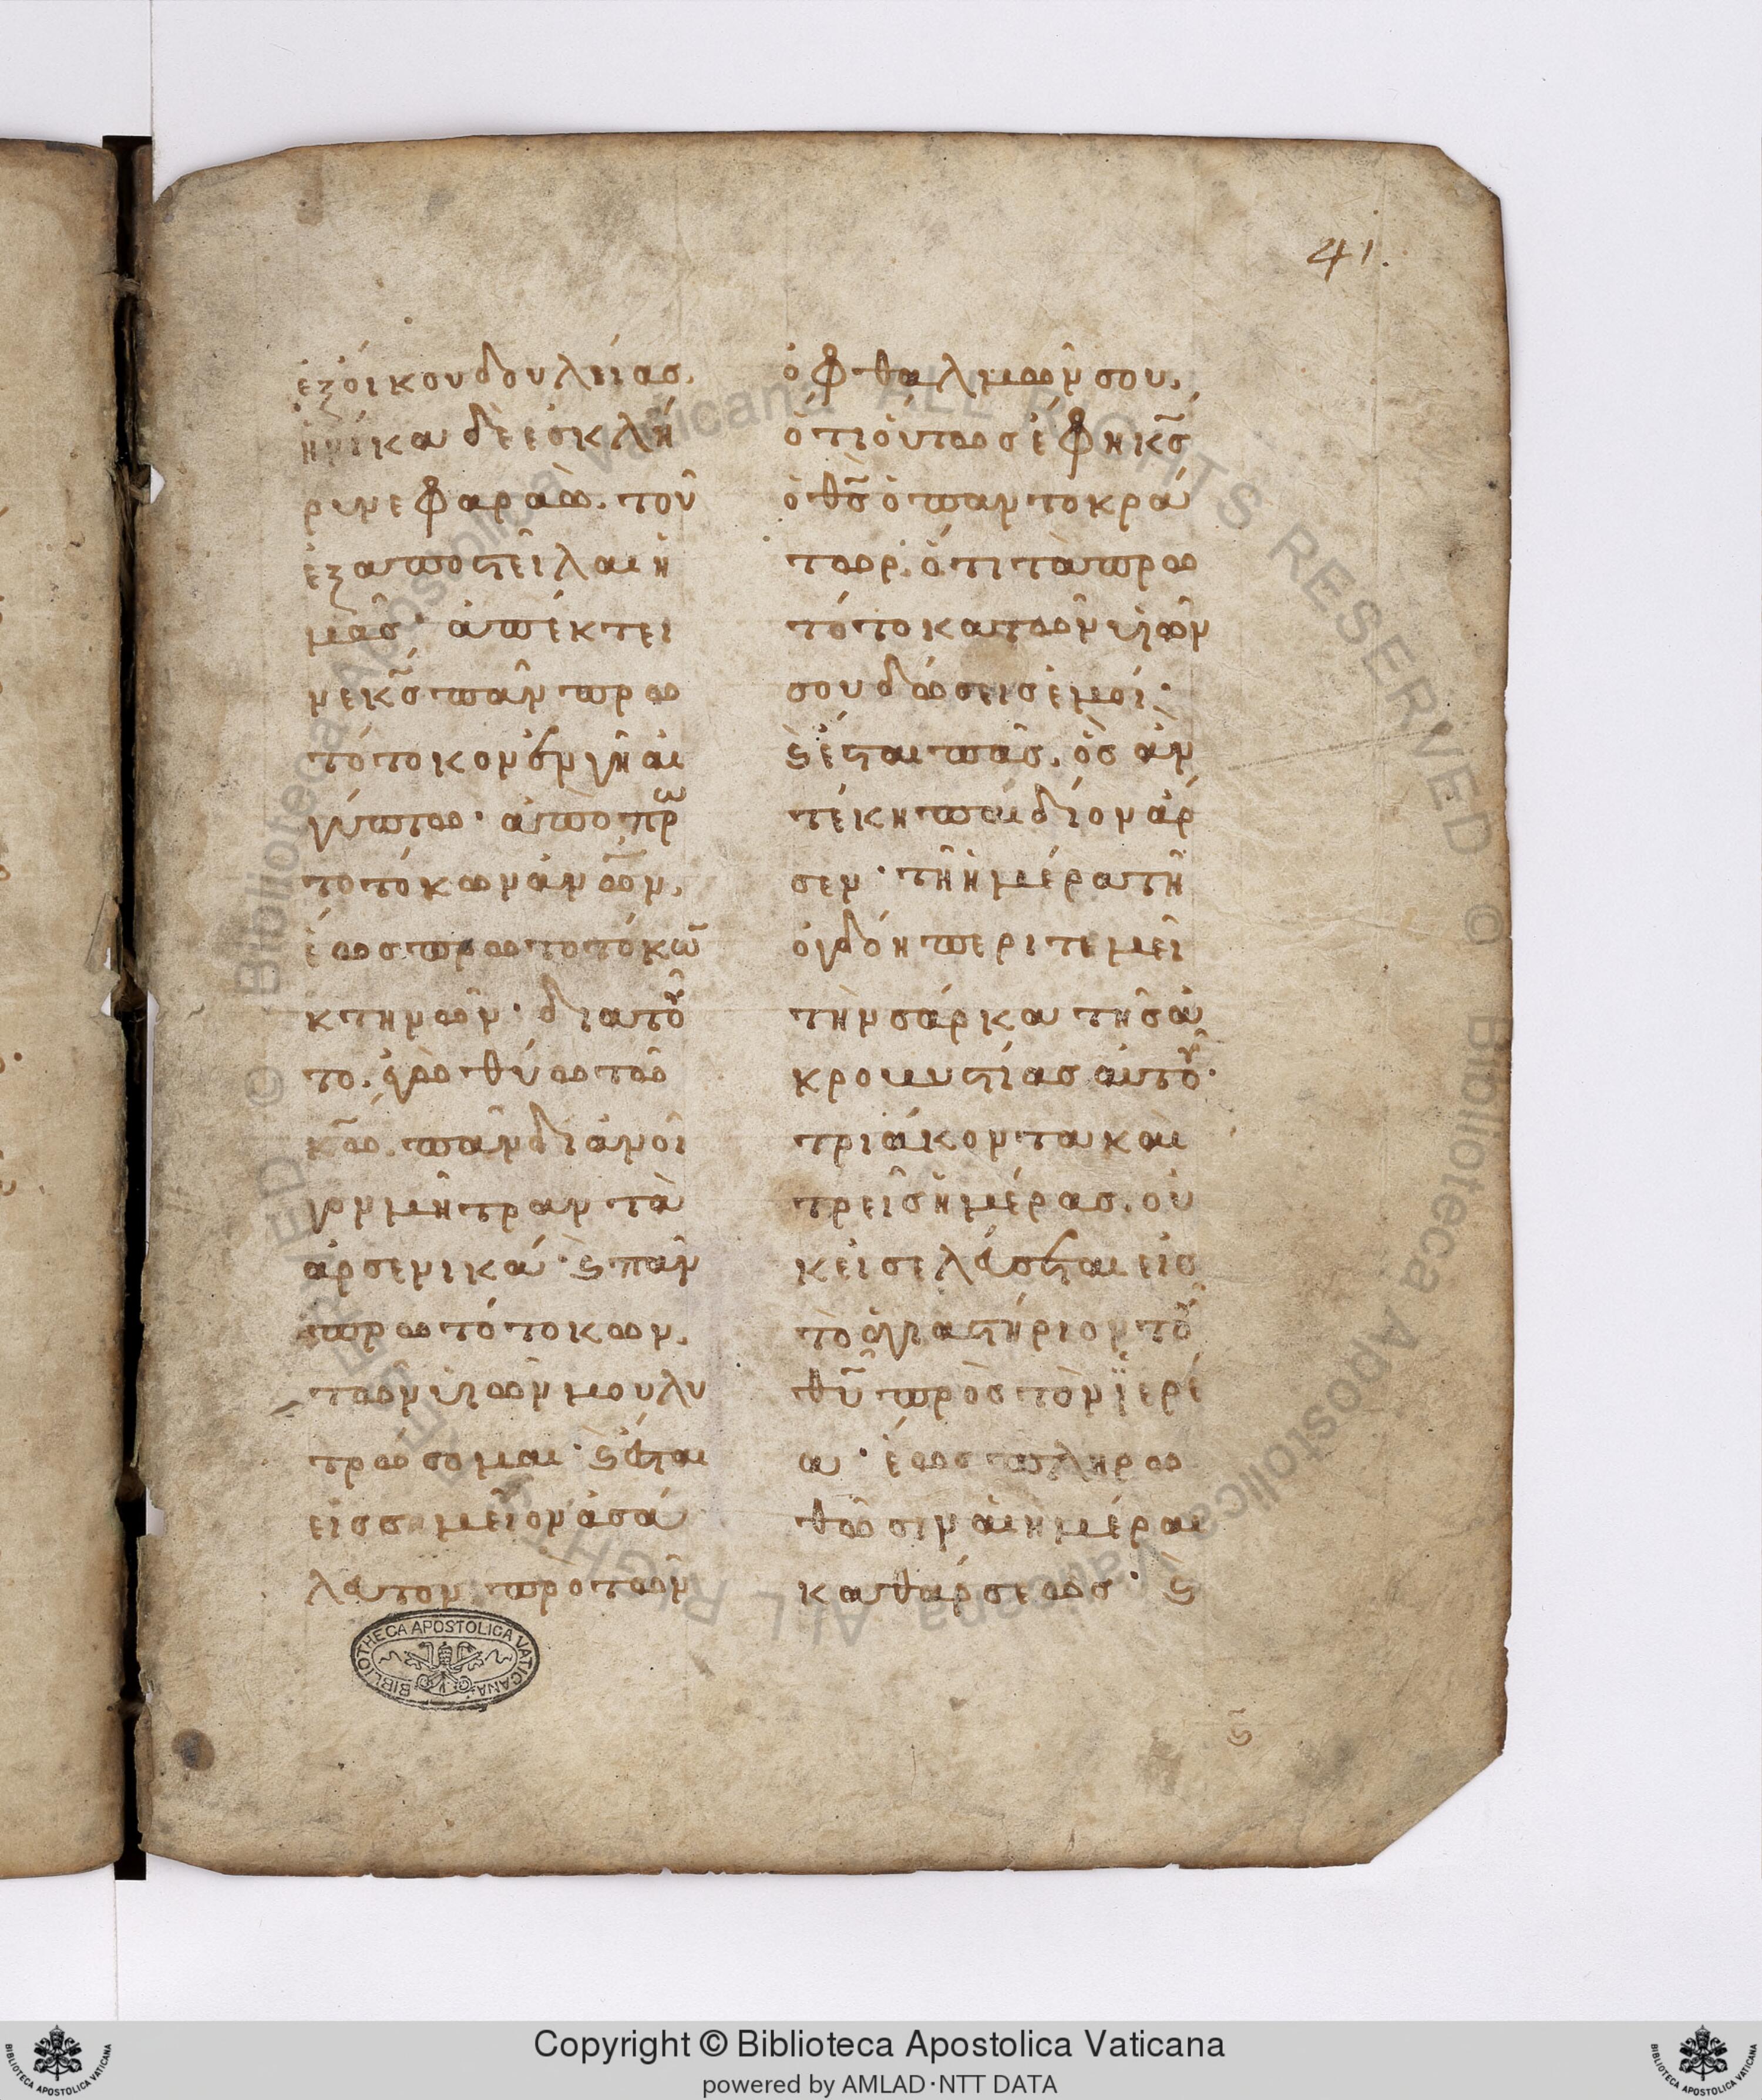 41.
ἐξοίκουδουλείασ.
ἡνίκα δὲ ἐσκλή
ρυνε φαραὼ. τοῦ
ἐξαποστεῖλαι ἡ
μᾶσ· ἀπέκτει
νε κ̅σ̅ πᾶν πρω
τότοκον ἐν γῆ αἰ
γύπτω· ἀπὸ πρω
τοτόκων ἀν̅ω̅ν.
ἕωσ πρωτοτόκω̅
κτηνῶν· διατοῦ
το. ἐγὼ θύω τῶ
κ̅ω̅. πᾶν διανοῖ
γον μήτραν τὰ
ἀρσενικά· ϛ πᾶν
πρωτότοκων.
τῶν υἱῶν μου λυ
τρώσομαι· ϛ ἔσται
εἰσ σημεῖον ἀσά
λευτον πρὸ τῶν
ὀφθαλμῶν σου.
ὅτι οὕτωσ ἔφη κ̅σ̅
ὁ θ̅σ̅ ὁ παντοκρά
τωρ. ὅτι τὰ πρω
τότοκα τῶν υἱῶν
σου δώσεισ ἐμοί·
ϛ ἔσται πᾶσ. ὃσ ἀν
τέκη παιδίον ἄρ
σεν· τῆ ἡμέρα τῆ
ὀγδόη περιτεμεῖ
τὴν σάρκα τῆσ ἀ
κροβυστίασ αὐτοῦ·
τριάκοντα καὶ
τρεῖσ ἡμέρασ. οὐ
κ εἰσελεύσεται εἰσ
τὸ ἁγιαστήριον τοῦ
θ̅υ̅ πρὸσ τὸν ἱερέ
α· ἕωσ πληρω
θῶσιν αἱ ἡμέραι
καθάρσεωσ· ϛ
BIBLIOTHECA APOSTOLICA VATICANA
© Biblioteca Apostolica Vaticana ALL RIGHTS RESERVED © Biblioteca Apostolica Vaticana ALL RIGHTS RESERVED
Copyright © Biblioteca Apostolica Vaticana
powered by AMLAD·NTT DATA
BIBLIOTECA APOSTOLICA VATICANA
BIBLIOTECA APOSTOLICA VATICANA